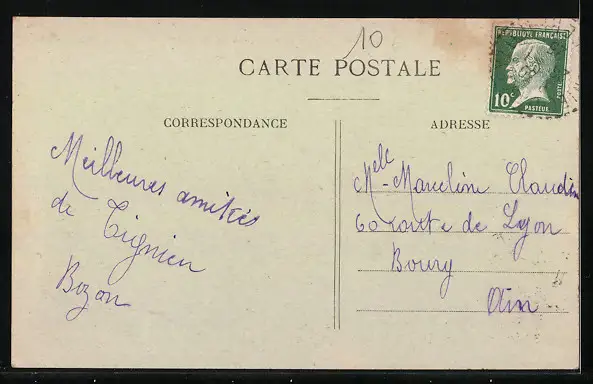 10
CARTE POSTALE
REPUBLIQUE FRANÇAISE
10c
POSTES
PASTEUR
CORRESPONDANCE
ADRESSE
Meilleures amitiés
de Tignieu
Bozon
Melle Marceline Claudin
60 route de Lyon
Bourg
Ain